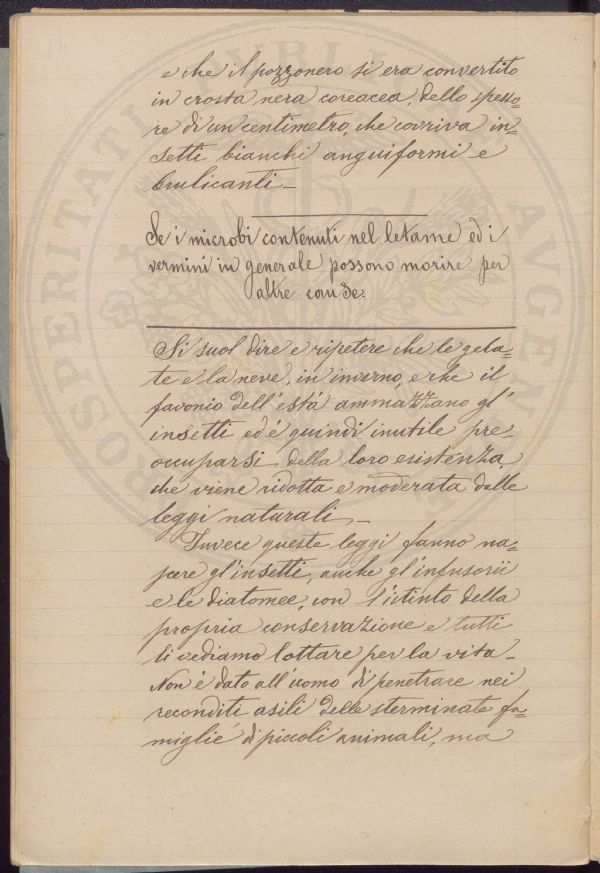 e che il pozzonero si era convertito
in crosta nera coreacea, dello spesso=
re di un centimetro, che covriva in=
setti bianchi anguiformi e
brulicanti_
Se i microbi contenuti nel letame ed i
vermini in generale possono morire per
altre cause.
Si suol dire e ripetere che le gela=
te e la neve, in inverno, e che il
favonio dell'està ammazzano gl'
insetti ed è quindi inutile pre=
occuparsi della loro esistenza,
che viene ridotta e moderata dalle
leggi naturali_
Invece queste leggi fanno na=
scere gl'insetti, anche gl'infusorii
e le diatomee, con l'istinto della
propria conservazione e tutti
li vediamo lottare per la vita_
Non è dato all'uomo di penetrare nei
reconditi asili delle sterminate fa=
miglie di piccoli animali, ma
PROSPERITATI PUBLICAE AUGENDAE